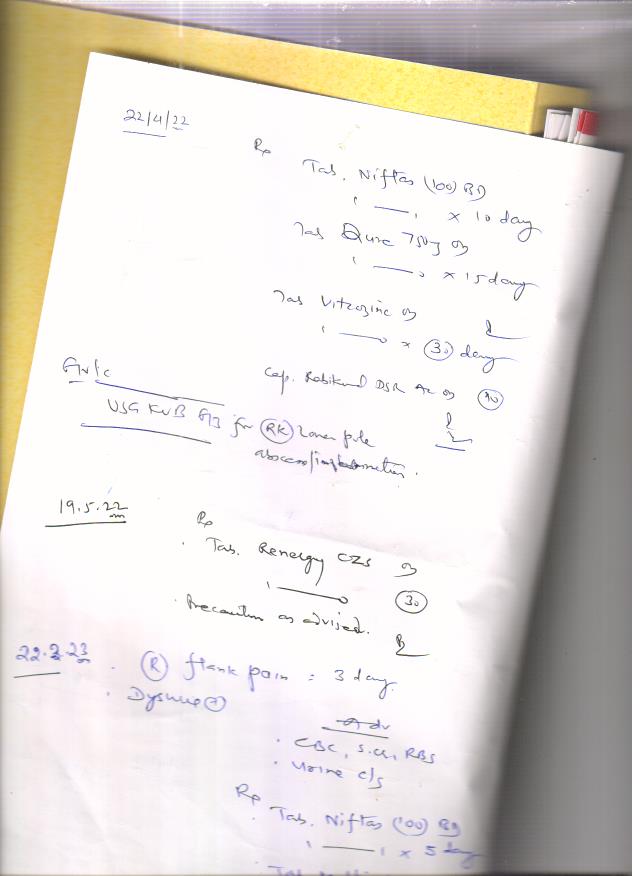 22/4/22
Rx
Tab. Niftas (100) BD
x 10 day
Tab 750mg OD
x 15 day
Tab Vitzozinc OD
x (30) day
Cap. DSR AC OD (10)
USG KUB for (RK) Lower pole
abscess/
19.5.22
Rx
Tab. Renergy CZS OD
(30)
Precaution as advised.
22.2.23 . (R) flank pain : 3 day.
. Dysuria (+)
Adv
. CBC, S.Cr, RBS
. Urine c/s
Rx Tab. Niftas (100) BD
x 5 day